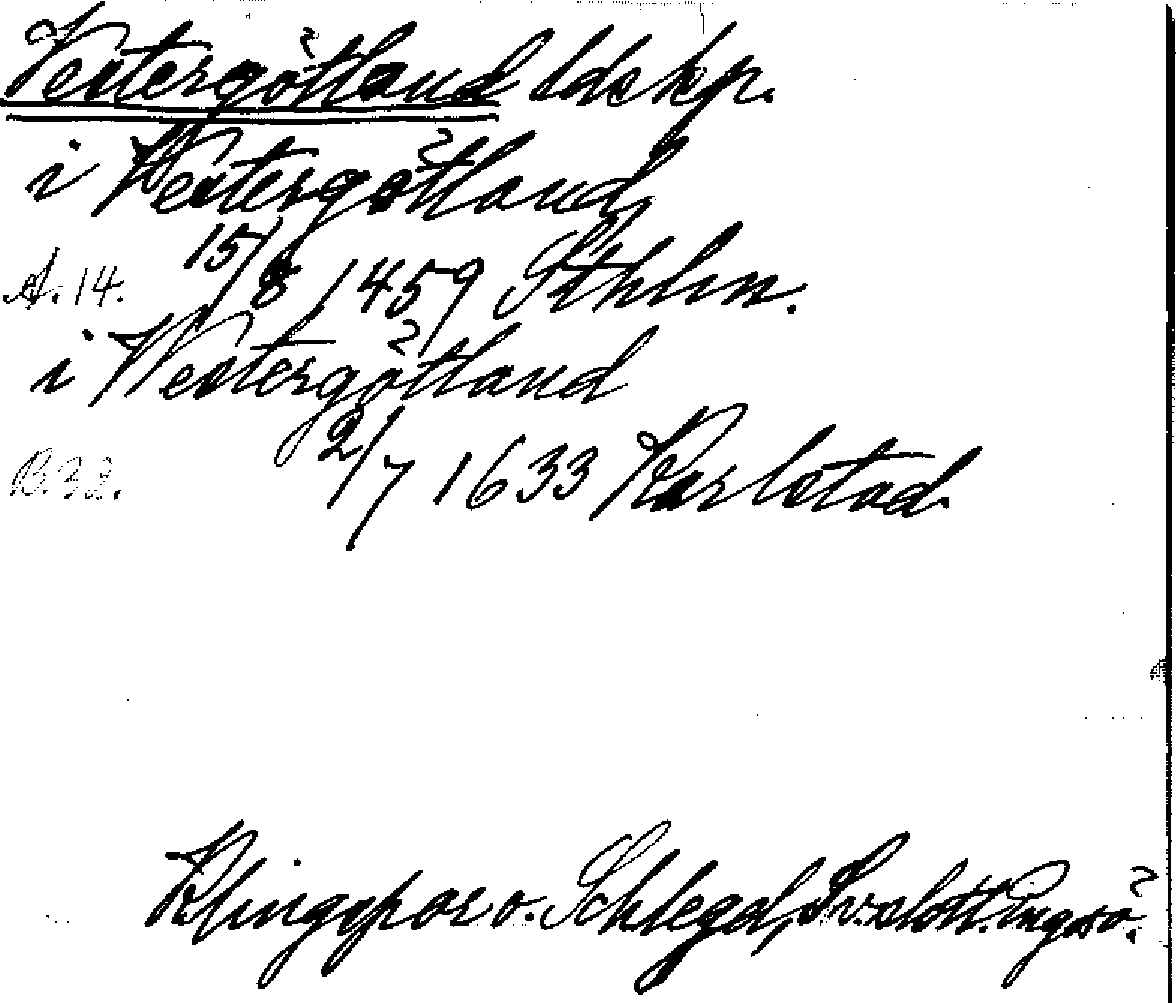 Vestergötland ldskp.
i Westergötland
A. 14. 15/8 1459 Sthlm.
i Westergötland
B. 33. 2/7 1633 Karlstad
Klingspor o. Schlegel, Sv. slott. Engsö.